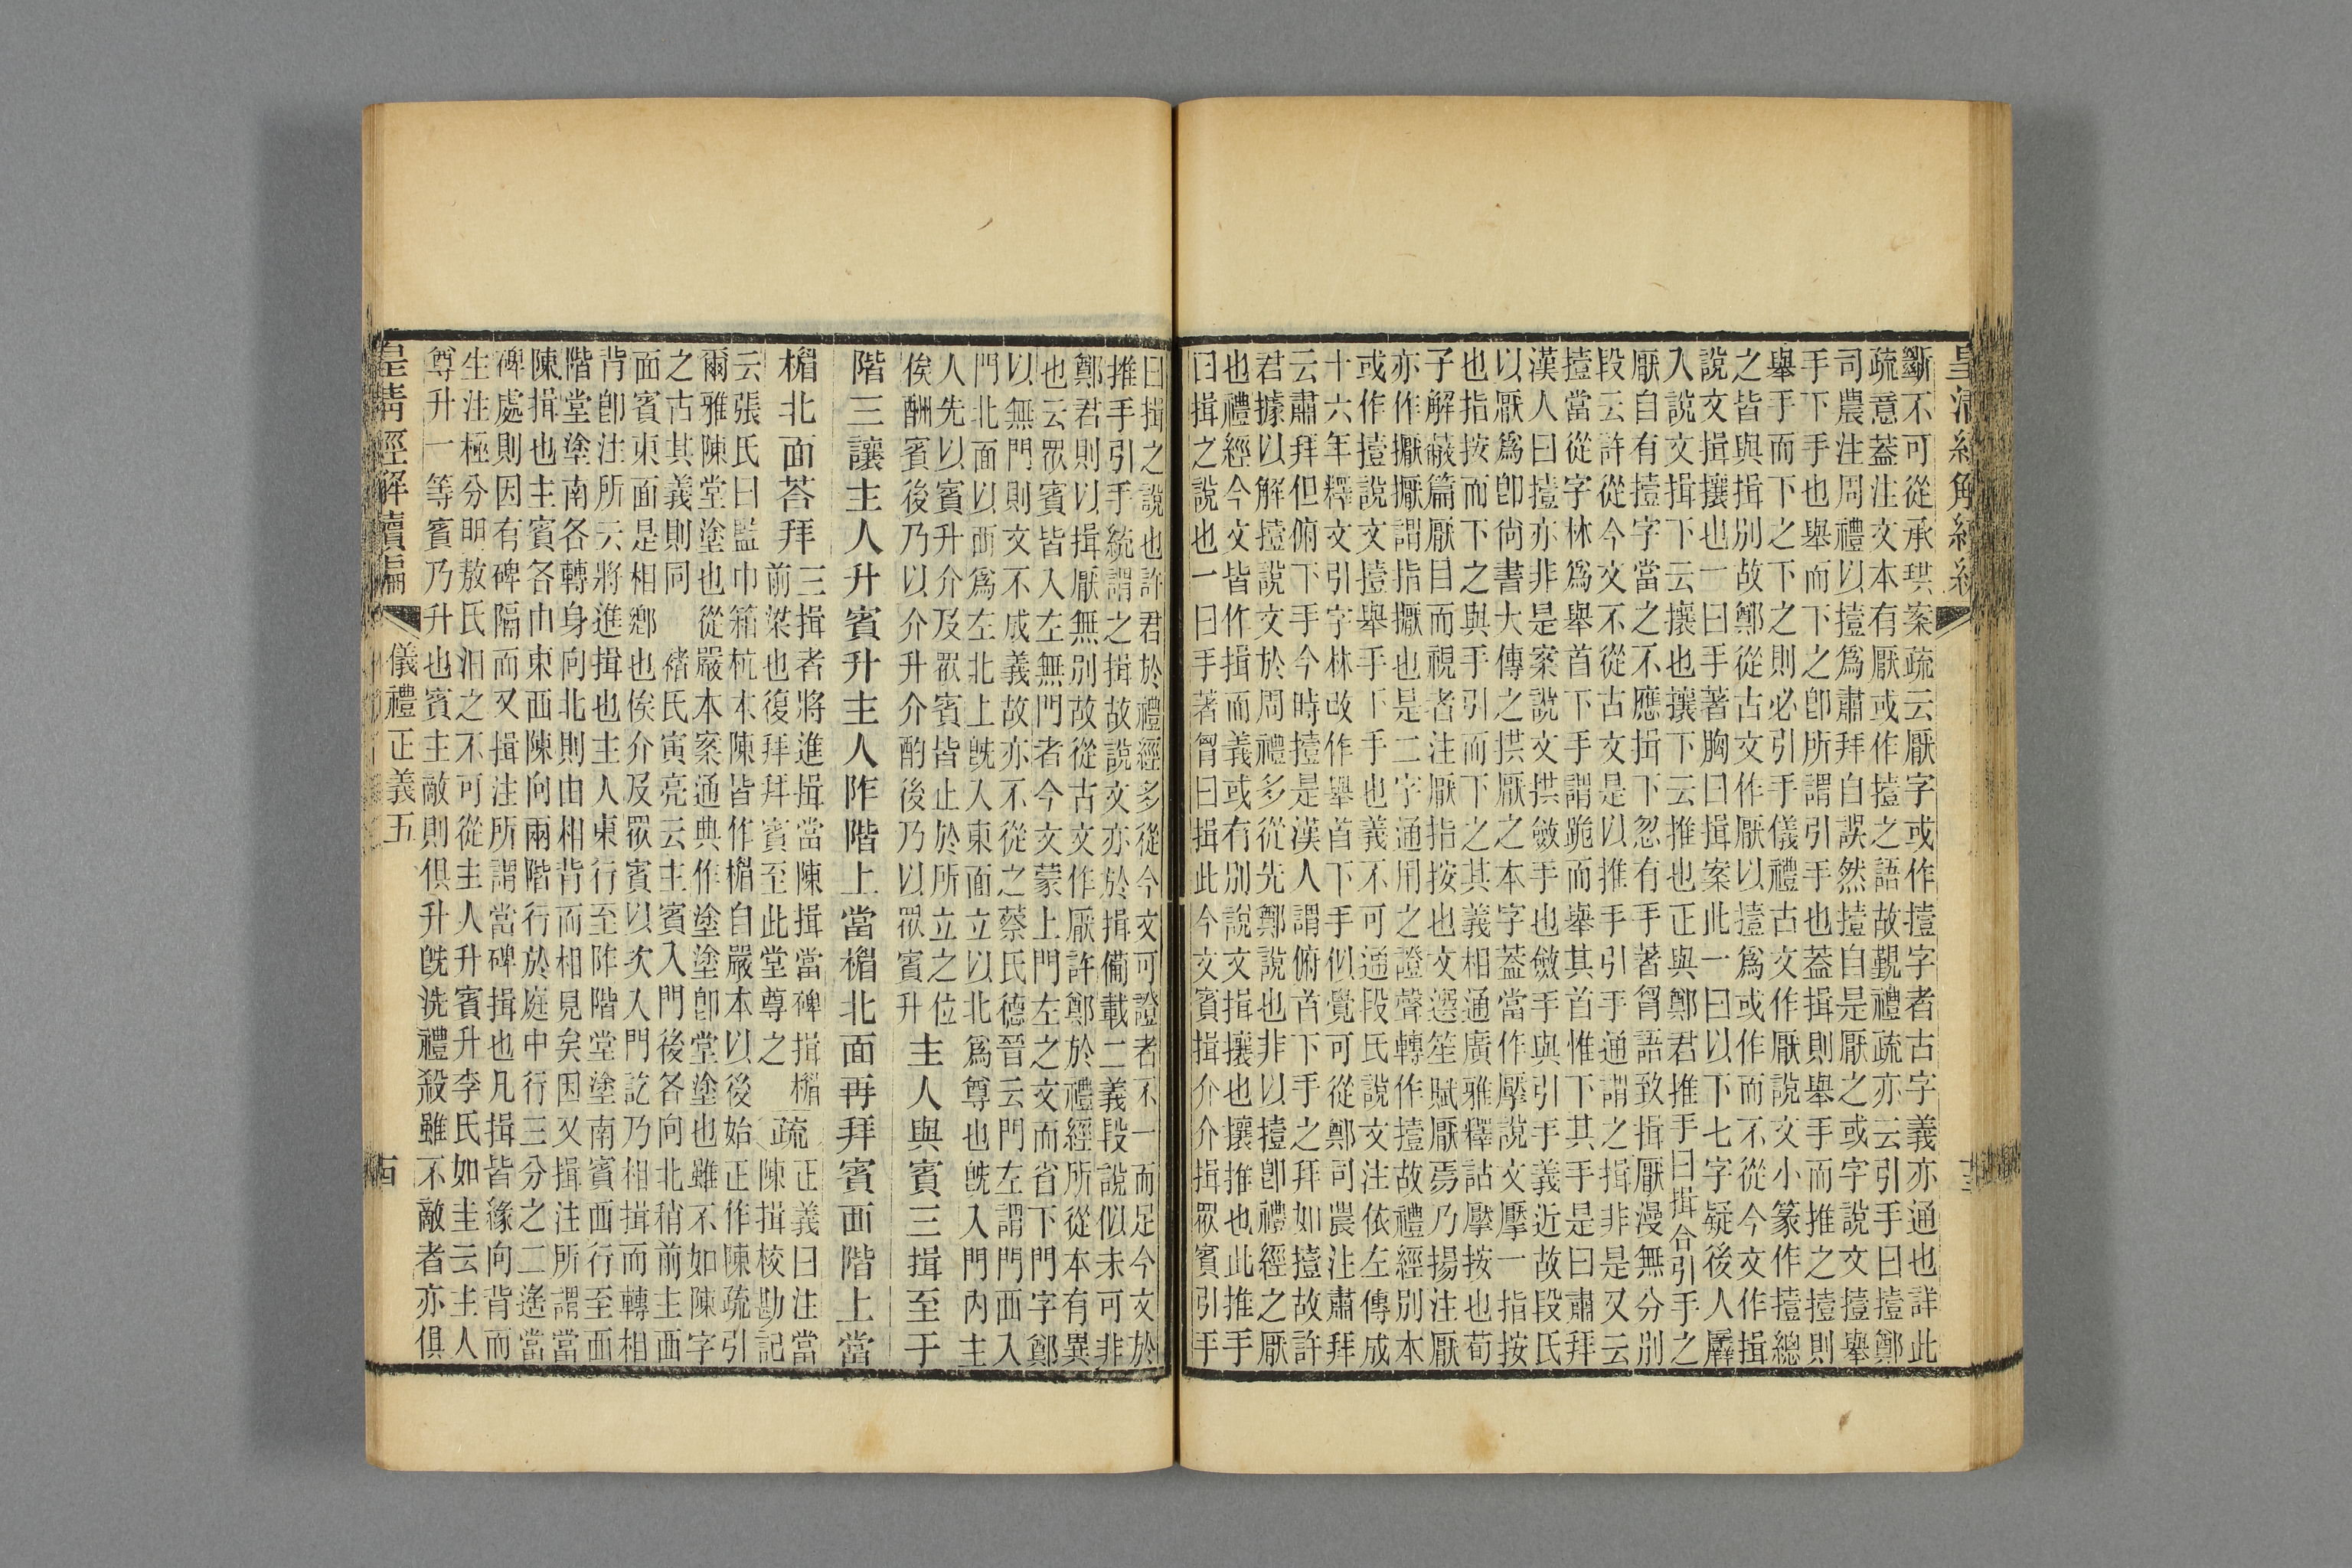 斷不可從承珙案疏云厭字或作撎字者古字義亦通也詳此
疏意蓋注文本有厭或作撎之語故覲禮疏亦云引手曰撎鄭
司農注周禮以撎為肅拜自誤然撎自是厭之或字說文撎舉
手下手也舉而下之卽所謂引手也蓋揖則舉手而推之撎則
舉手而下之下之則必引手儀禮古文作厭說文小篆作撎總
之皆與揖別故鄭從古文作厭以撎為或作而不從今文作揖
說文揖攘也一曰手著胸曰揖案此一曰以下七字疑後人羼
入說文揖下云攘也攘下云推也正與鄭君推手曰揖合引手之
厭自有撎字當之不應揖下忽有手著胷語致揖厭漫無分別
段云許從今文不從古文是以推手引手通謂之揖非是又云
撎當從字林為舉首下手謂跪而舉其首惟下其手是曰肅拜
漢人曰撎亦非是案說文拱斂手也斂手與引手義近故段氏
以厭為卽尚書大傳之拱厭之本字蓋當作擪說文擪一指按
也指按而下之與手引而下之其義相通廣雅釋詁擪按也荀
子解蔽篇厭目而視者注厭指按也文選笙賦厭焉乃揚注厭
亦作擫擫謂指擫也是二字通用之證聲轉作撎故禮經別本
或作撎說文撎舉手下手也義不可通段氏說文注依左傳成
十六年釋文引字林改作舉首下手似覺可從鄭司農注肅拜
云肅拜但俯下手今時撎是漢人謂俯首下手之拜如撎故許
君據以解撎說文於周禮多從先鄭說也非以撎卽禮經之厭
也禮經今文皆作揖而義或有別說文揖攘也攘推也此推手
曰揖之說也一曰手著胷曰揖此今文賓揖介介揖眾賓引手
曰揖之說也許君於禮經多從今文可證者不一而足今文於
推手引手統謂之揖故說文亦於揖備載二義段說似未可非
鄭君則以揖厭無別故從古文作厭許鄭於禮經所從本有異
也云眾賓皆入左無門者今文蒙上門左之文而省下門字鄭
以無門則文不成義故亦不從之蔡氏德晉云門左謂門西入
門北面以西為左北上旣入東面立以北為尊也旣入門內主
人先以賓升介及眾賓皆止於所立之位
俟酬賓後乃以介升介酌後乃以眾賓升主人與賓三揖至于
階三讓主人升賓升主人阼階上當楣北面再拜賓西階上當
楣北面荅拜三揖者將進揖當陳揖當碑揖楣
前梁也復拜拜賓至此堂尊之疏正義曰注當
陳揖校勘記
云張氏曰監巾箱杭本陳皆作楣自嚴本以後始正作陳疏引
爾雅陳堂塗也從嚴本案通典作塗塗卽堂塗也雖不如陳字
之古其義則同 褚氏寅亮云主賓入門後各向北稍前主西
面賓東面是相鄉也俟介及眾賓以次入門訖乃相揖而轉相
背卽注所云將進揖也主人東行至阼階堂塗南賓西行至西
階堂塗南各轉身向北則由相背而相見矣因又揖注所謂當
陳揖也主賓各由東西陳向兩階行於庭中行三分之二遙當
碑處則因有碑隔而又揖注所謂當碑揖也凡揖皆緣向背而
生注極分明敖氏汨之不可從主人升賓升李氏如圭云主人
尊升一等賓乃升也賓主敵則俱升旣洗禮殺雖不敵者亦俱
皇清經解續編 儀禮正義五